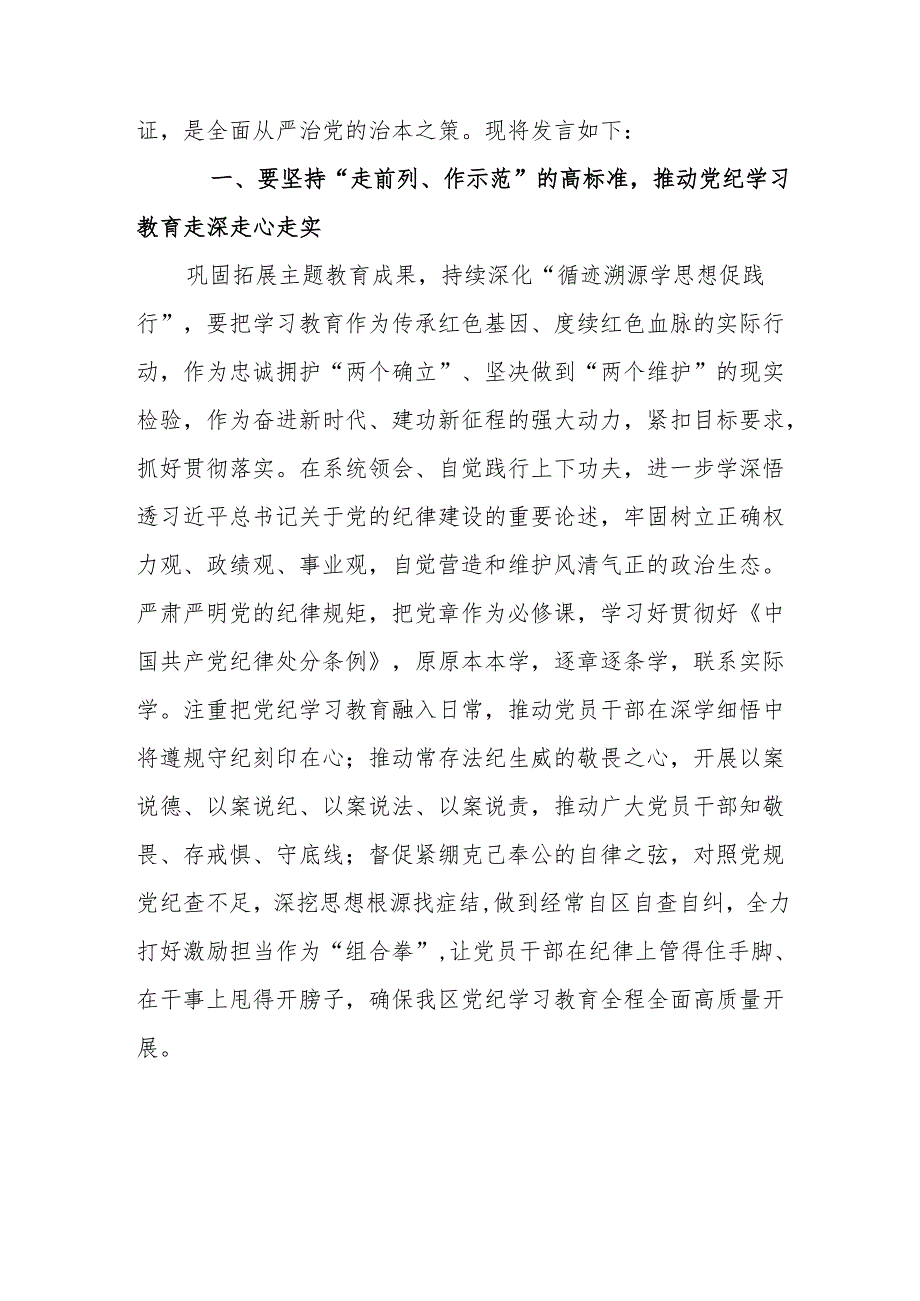 证，是全面从严治党的治本之策。现将发言如下：
一、要坚持“走前列、作示范”的高标准，推动党纪学习
教育走深走心走实
巩固拓展主题教育成果，持续深化“循迹溯源学思想促践
行”，要把学习教育作为传承红色基因、度续红色血脉的实际行
动，作为忠诚拥护“两个确立”、坚决做到“两个维护”的现实
检验，作为奋进新时代、建功新征程的强大动力，紧扣目标要求，
抓好贯彻落实。在系统领会、自觉践行上下功夫，进一步学深悟
透习近平总书记关于党的纪律建设的重要论述，牢固树立正确权
力观、政绩观、事业观，自觉营造和维护风清气正的政治生态。
严肃严明党的纪律规矩，把党章作为必修课，学习好贯彻好《中
国共产党纪律处分条例》，原原本本学，逐章逐条学，联系实际
学。注重把党纪学习教育融入日常，推动党员干部在深学细悟中
将遵规守纪刻印在心；推动常存法纪生威的敬畏之心，开展以案
说德、以案说纪、以案说法、以案说责，推动广大党员干部知敬
畏、存戒惧、守底线；督促紧绷克己奉公的自律之弦，对照党规
党纪查不足，深挖思想根源找症结,做到经常自区自查自纠，全力
打好激励担当作为“组合拳”,让党员干部在纪律上管得住手脚、
在干事上甩得开膀子，确保我区党纪学习教育全程全面高质量开
展。